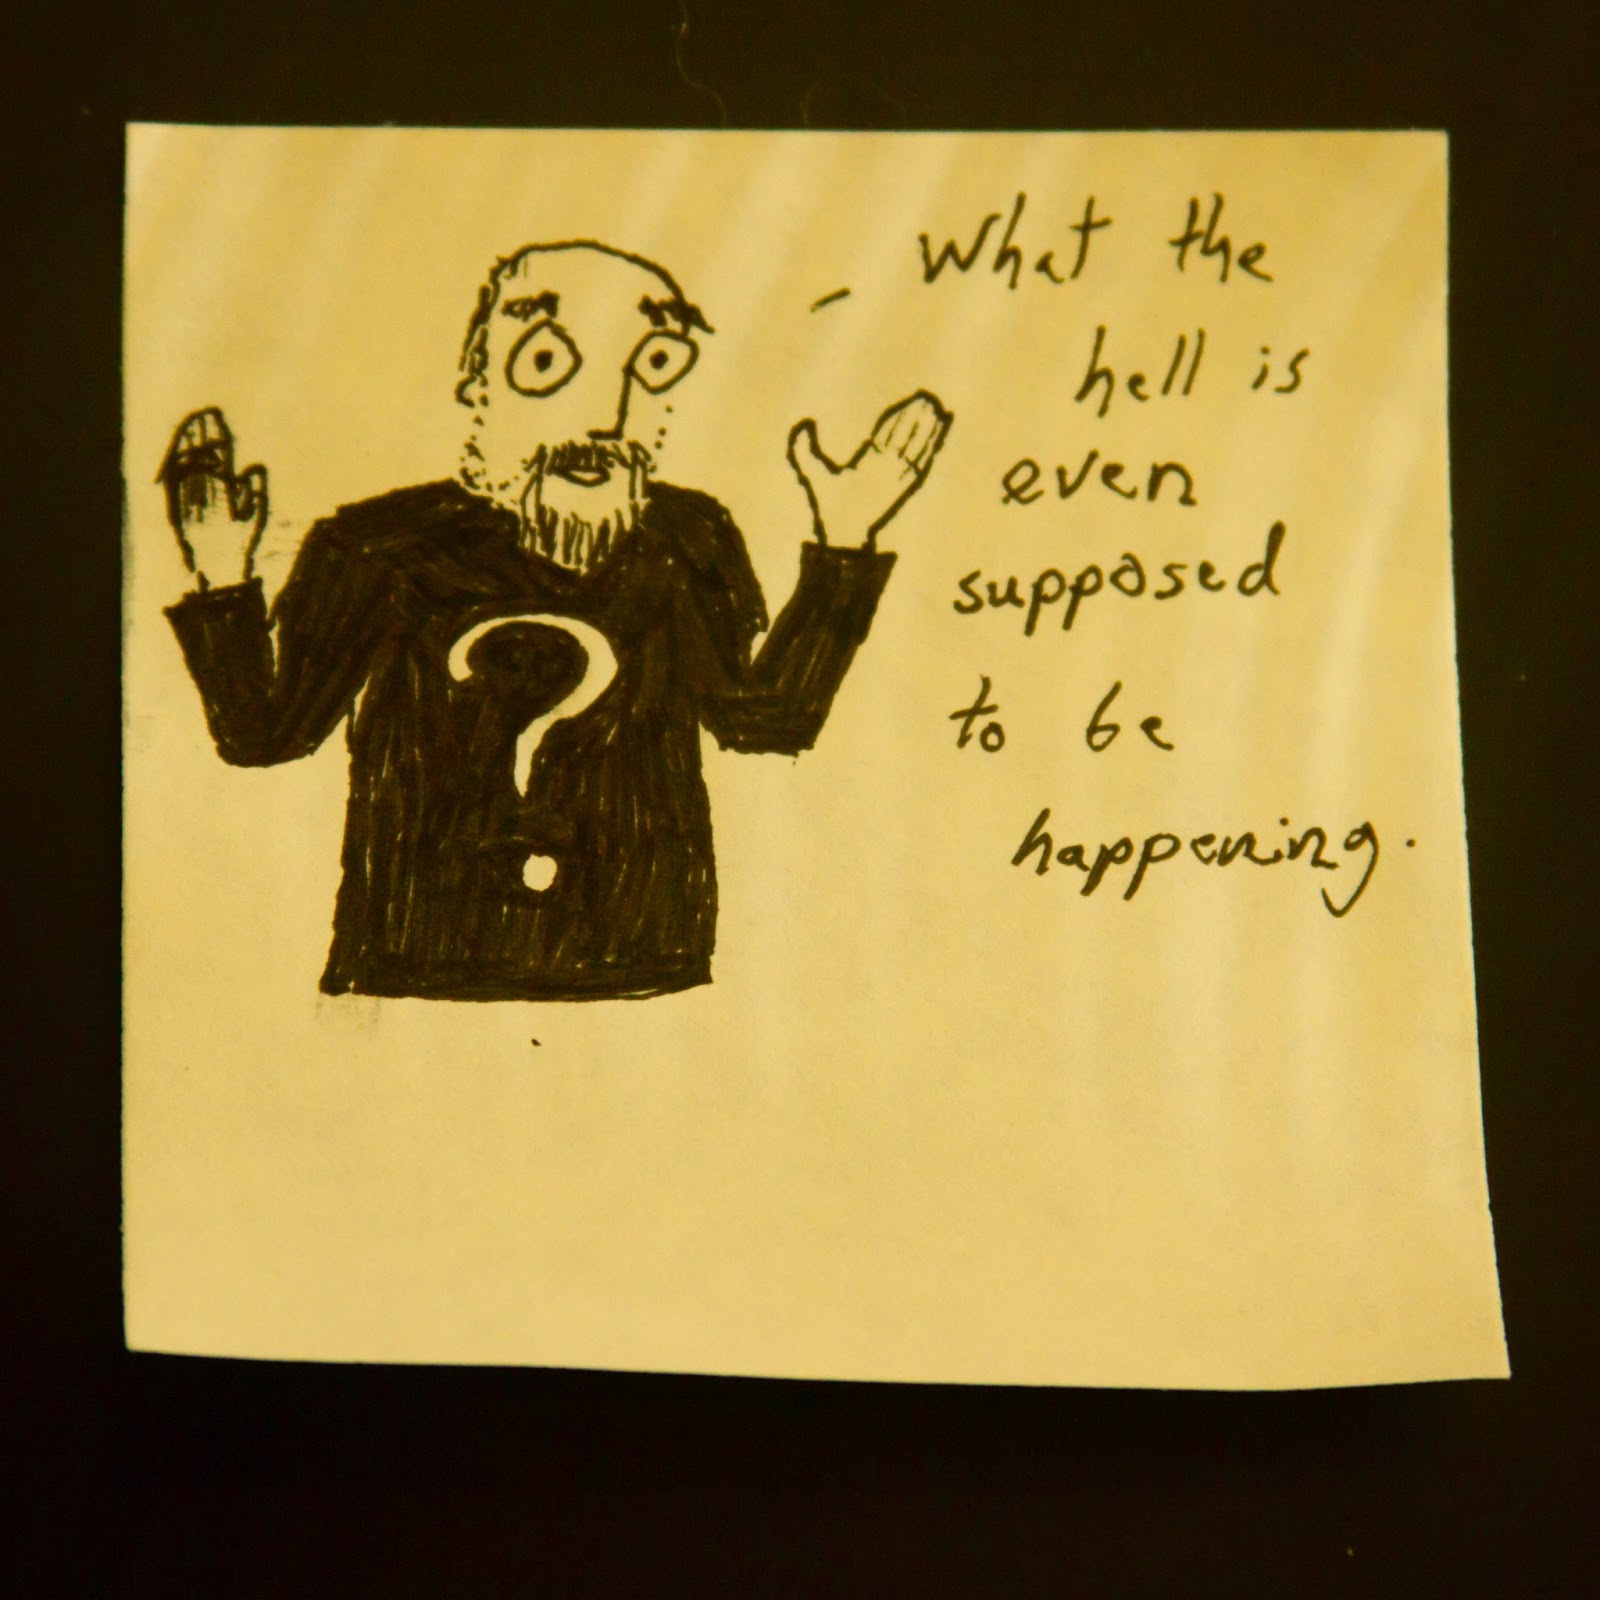 - What the
hell is
even
supposed
to be
happening.
?